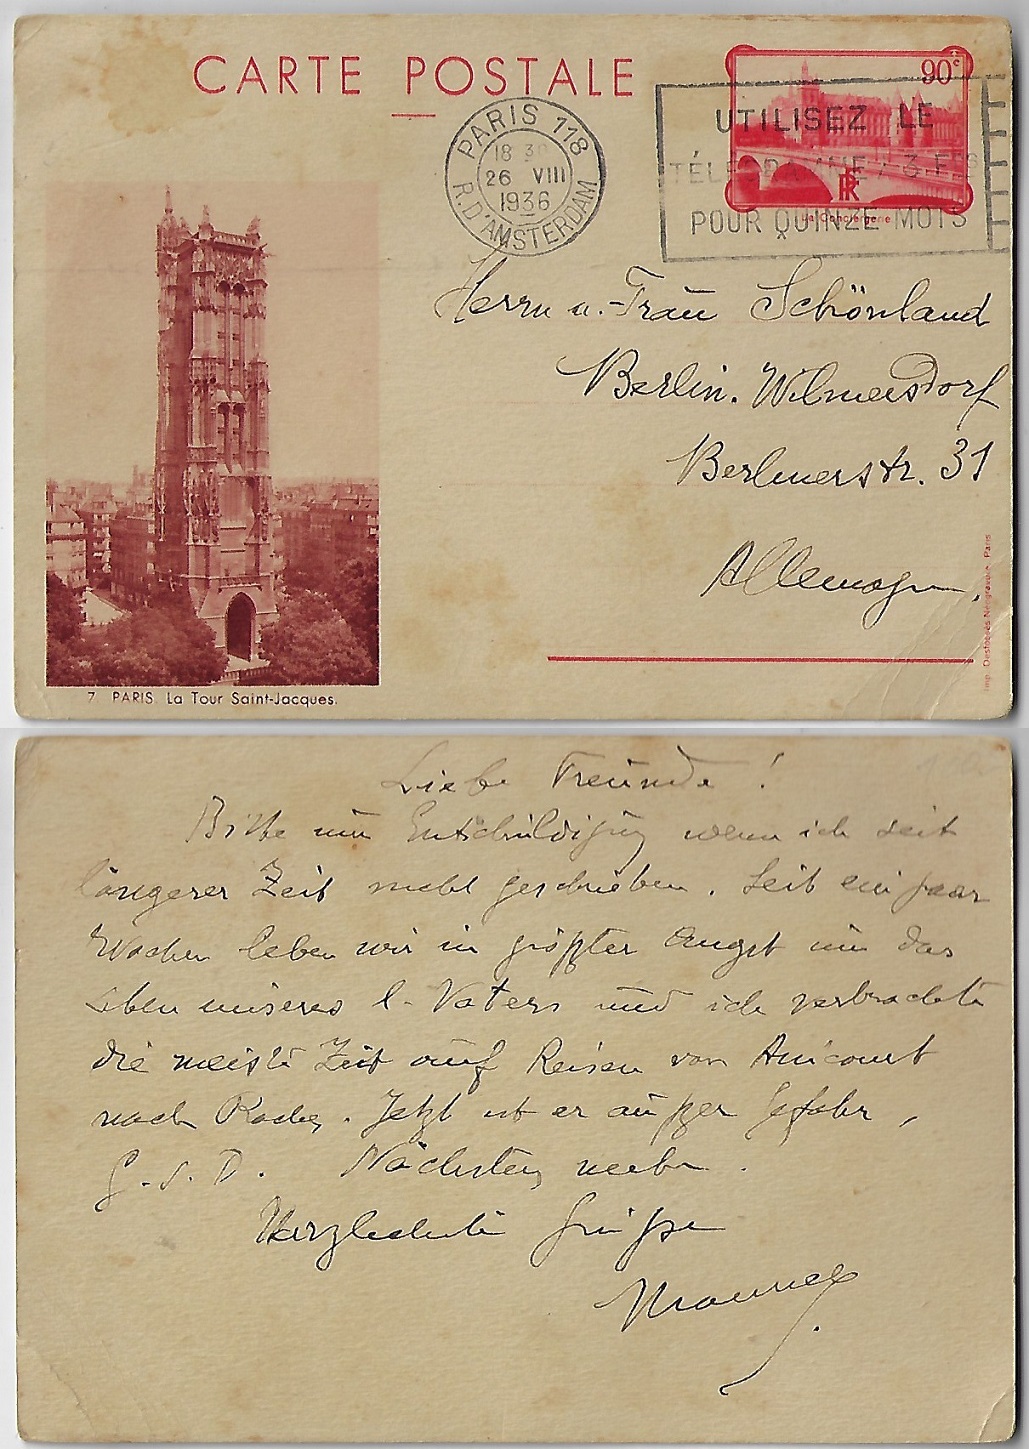 CARTE POSTALE
90c
La Conciergerie
RF
PARIS 118
18 30
26 VIII
1936
R. D'AMSTERDAM
UTILISEZ LE
TÉLÉGRAMME / 3 FCS
POUR QUINZE MOTS
Herrn u. Frau Schönland
Berlin. Wilmersdorf
Berlinerstr. 31
Allemagne.
7. PARIS. La Tour Saint-Jacques.
Imp. Desfossés-Néogravure - Paris
Liebe Freunde!
Bitte um Entschuldigung wenn ich seit
längerer Zeit nicht geschrieben. Seit ein paar
Wochen leben wir in größter Angst um das
Leben unseres l. Vaters und ich verbrachte
die meiste Zeit auf Reisen von
nach. Jetzt ist er außer Gefahr,
G. s. D. Nächstens mehr.
Herzlichste Grüße